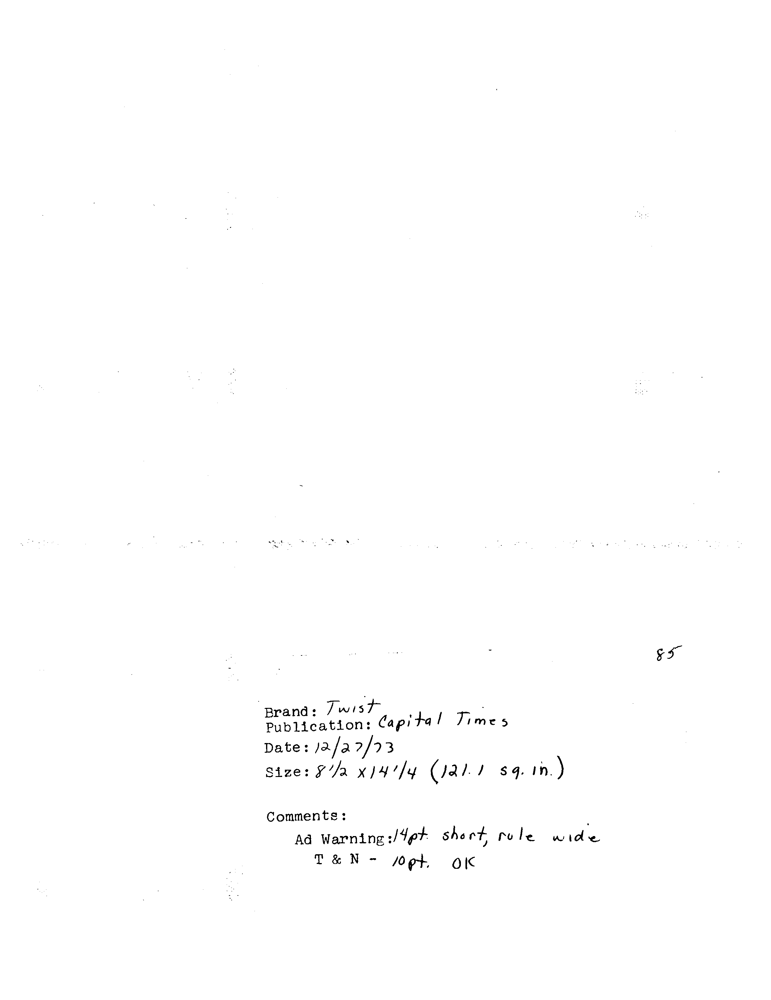 85
Brand: Twist
Publication: Capital Times
Date: 12/27/73
Size: 8 1/2 x 14 1/4 (121.1 sq. in.)
Comments:
Ad Warning: 14pt. short, rule wide
T & N - 10pt. OK